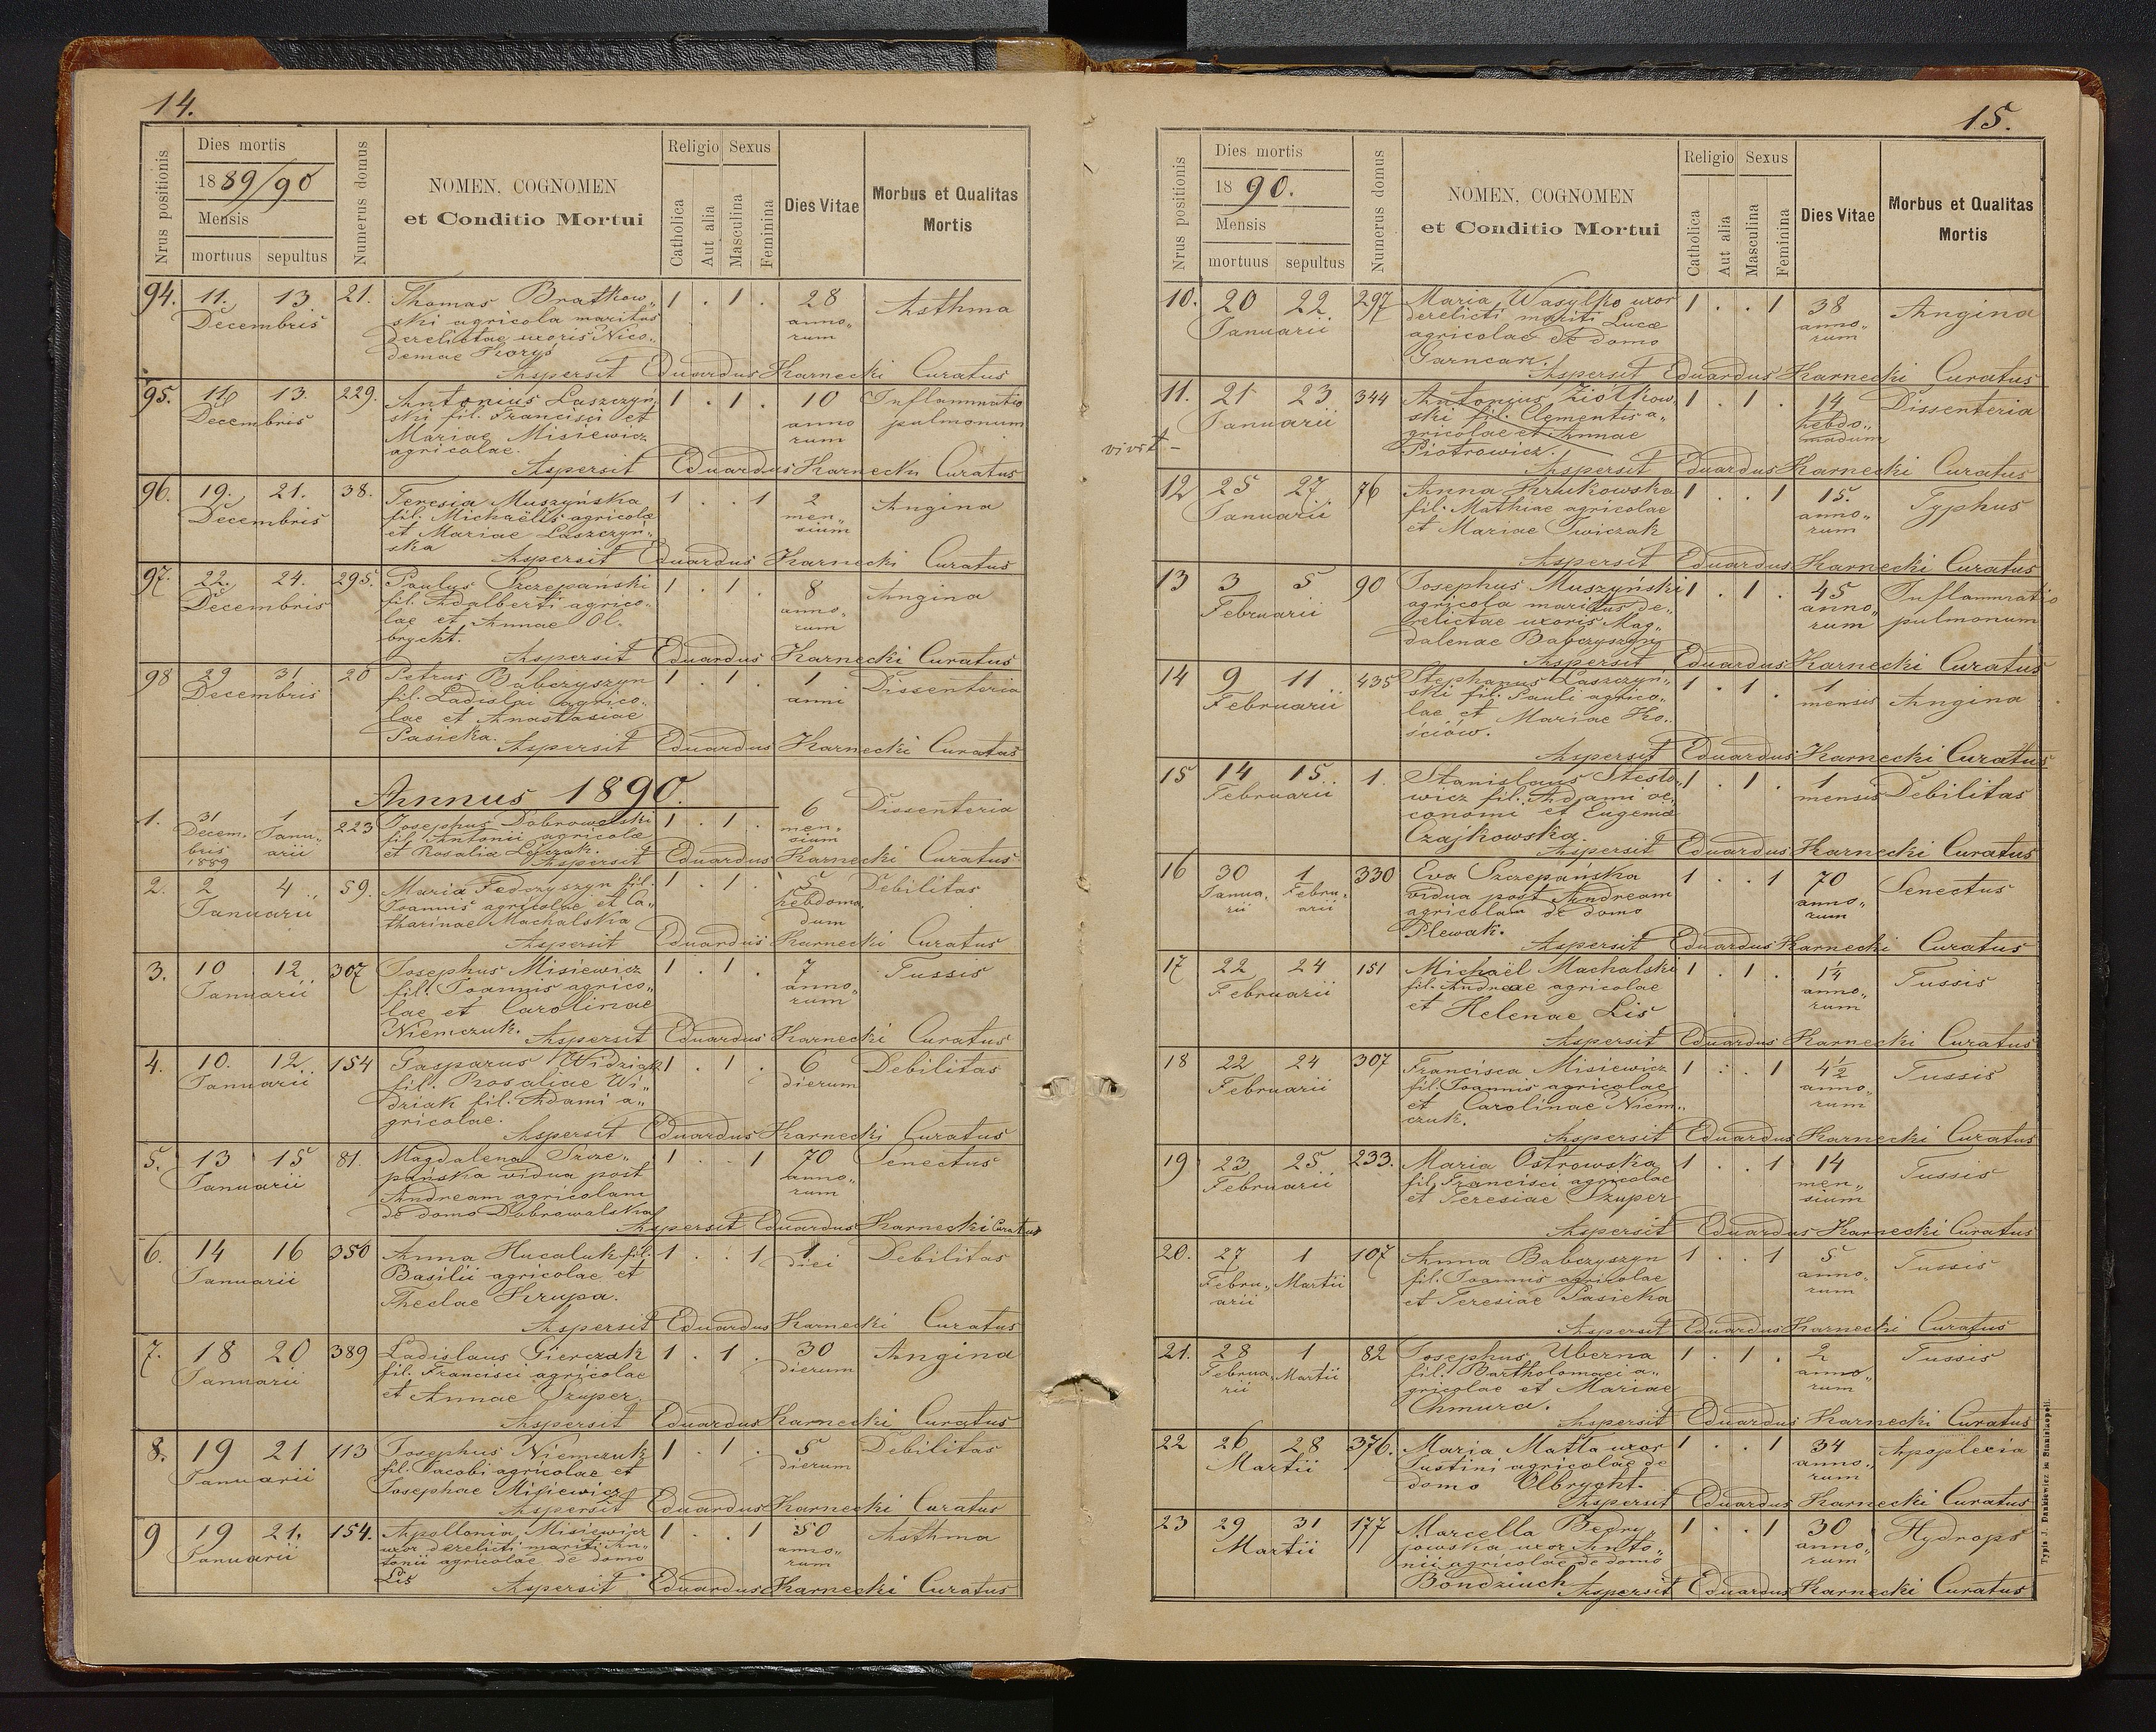 14.
Nrus positionis
Dies mortis
1889/90
Mensis
mortuus sepultus
Numerus domus
NOMEN, COGNOMEN
et Conditio Mortui
Religio Sexus
Catholica
Aut alia
Masculina
Feminina
Dies Vitae
Morbus et Qualitas
Mortis
94. 11. 13 21. Thomas Bratkow„ 1 . 1 . 28 Asthma
Decembris ski agricola maritus anno„
derelictae uxoris Nico„ rum
demae Korys
Aspersit Eduardus Karnecki Curatus
95. 11 13. 229. Antonius Laszczyń„ 1 . 1 . 10 Inflammatio
Decembris ski fil. Francisci et anno pulmonum
Mariae Misiewicz rum
agricolae.
Aspersit Eduardus Karnecki Curatus
96. 19. 21. 38. Teresia Muszyńska 1 . . 1 2 Angina
Decembris fil. Michaëlis agricolæ men„
et Mariae Laszczyń„ sium
ska
Aspersit Eduardus Karnecki Curatus
97. 22. 24. 295. Paulus Szczepański 1 . 1 . 8 Angina
Decembris fil. Adalberti agrico„ anno„
lae et Annae Ol„ rum
brycht.
Aspersit Eduardus Karnecki Curatus
98 29 31 20 Petrus Babczyszyn 1 . 1 . 1 Dissenteria
Decembris fil. Ladislai agrico„ anni
lae et Anastasiae
Pasieka.
Aspersit Eduardus Karnecki Curatus
Annus 1890.
1. 31 1 223 Josephus Dobrowolski 1 . 1 . 6 Dissenteria
Decem„ Janu„ fil. Antonii agricolæ men„
bris arii et Rosalia sium
1889
Aspersit Eduardus Karnecki Curatus
2. 2 4 59. Maria Fedczyszyn fil. 1 . 1 . 5 Debilitas
Januarii Joannis agricolae et Ca„ hebdoma„
tharinae Machalska dum
Aspersit Eduardus Karnecki Curatus
3. 10 12 307 Josephus Misiewicz 1 . 1 . 7 Tussis
Januarii fil. Joannis agrico„ anno„
lae et Carolinae rum
Niemczuk.
Aspersit Eduardus Karnecki Curatus
4. 10. 12. 154 Gasparus Widziak 1 . 1 . 6 Debilitas
Januarii fil. Rosaliae Wi„ dierum
dziak fil. Adami a„
gricolae.
Aspersit Eduardus Karnecki Curatus
5. 13 15 81. Magdalena Szcze„ 1 . . 1 70 Senectus
Januarii pańska vidua post anno„
Andream agricolam rum
de domo Dobrowalska
Aspersit Eduardus Karnecki Curatus
6. 14 16 350 Anna Hucaluk fil. 1 . . 1 1 Debilitas
Januarii Basilii agricolae et diei
Theclae Krupa.
Aspersit Eduardus Karnecki Curatus
7. 18 20 389 Ladislaus Gierczak 1 . 1 . 30 Angina
Januarii fil. Francisci agricolae dierum
et Annae Szuper.
Aspersit Eduardus Karnecki Curatus
8. 19 21 113 Josephus Niemczuk 1 . 1 . 5 Debilitas
Januarii fil. Jacobi agricolae et dierum
Josephae Misiewicz
Aspersit Eduardus Karnecki Curatus
9 19 21. 154. Apollonia Misiewicz 1 . . 1 50 Asthma
Januarii uxor derelicti mariti An„ anno„
tonii agricolae de domo rum
Lis
Aspersit Eduardus Karnecki Curatus
15.
Nrus positionis
Dies mortis
1890.
Mensis
mortuus sepultus
Numerus domus
NOMEN, COGNOMEN
et Conditio Mortui
Religio Sexus
Catholica
Aut alia
Masculina
Feminina
Dies Vitae
Morbus et Qualitas
Mortis
10. 20 22 297 Maria Wasylko uxor 1 . . 1 38 Angina
Januarii derelicti mariti Lucæ anno„
agricolae de domo rum
Garncarz.
Aspersit Eduardus Karnecki Curatus
11. 21 23 344 Antonius Ziółkow„ 1 . 1 . 14 Dissenteria
Januarii ski fil. Clementis a„ hebdo„
gricolae et Annae madum
vivit Piotrowicz.
Aspersit Eduardus Karnecki Curatus
12 25 27 76 Anna Krukowska 1 . . 1 15. Typhus
Januarii fil. Mathiae agricolae anno„
et Mariae Iwiczak rum
Aspersit Eduardus Karnecki Curatus
13 3 5 90 Josephus Muszyński 1 . 1 . 45 Inflammatio
Februarii agricola maritus de„ anno„ pulmonum
relictae uxoris Mag„ rum
dalenae Babczyszyn
Aspersit Eduardus Karnecki Curatus
14 9 11 435 Stephanus Laszczyń„ 1 . 1 . 1 Angina
Februarii ski fil. Pauli agrico„ mensis
lae et Mariae Ko„
ściów.
Aspersit Eduardus Karnecki Curatus
15 14 15 1. Stanislaus Stesło„ 1 . 1 . 1 Debilitas
Februarii wicz fil. Adami oe„ mensis
conomi et Eugeniæ
Czajkowska.
Aspersit Eduardus Karnecki Curatus
16 30 1 330 Eva Szczepańska 1 . . 1 70 Senectus
Janua„ Febru„ vidua post Andream anno„
rii arii agricolam de domo rum
Plewak.
Aspersit Eduardus Karnecki Curatus
17 22 24 151 Michaël Machalski 1 . 1 . 1¼ Tussis
Februarii fil. Andreae agricolae anno„
et Helenae Lis rum
Aspersit Eduardus Karnecki Curatus
18 22 24 307 Francisca Misiewicz 1 . . 1 4½ Tussis
Februarii fil. Joannis agricolae anno„
et Carolinae Niem„ rum
czuk.
Aspersit Eduardus Karnecki Curatus
19 23 25 233. Maria Ostrowska 1 . . 1 14 Tussis
Februarii fil. Francisci agricolae men„
et Teresiae Szuper sium
Aspersit Eduardus Karnecki Curatus
20. 27 1 107 Anna Babczyszyn 1 . . 1 5 Tussis
Febru„ Martii fil. Joannis agricolae anno„
arii et Teresiae Pasieka rum
Aspersit Eduardus Karnecki Curatus
21. 28 1 82 Josephus Uberna 1 . 1 . 2 Tussis
Februa„ Martii fil. Bartholomaei a„ anno„
rii gricolae et Mariae rum
Chmura.
Aspersit Eduardus Karnecki Curatus
22 26 28 376. Maria Matła uxor 1 . . 1 34 Apoplexia
Martii Justini agricolae de anno„
domo Olbrycht. rum
Aspersit Eduardus Karnecki Curatus
23 29 31 177 Marcella Bedry„ 1 . . 1 30 Hydrops
Martii jowska uxor Anto„ anno„
nii agricolae de domo rum
Bondziuch
Aspersit Eduardus Karnecki Curatus
Typis J. Dankiewicz in Stanislaopoli.